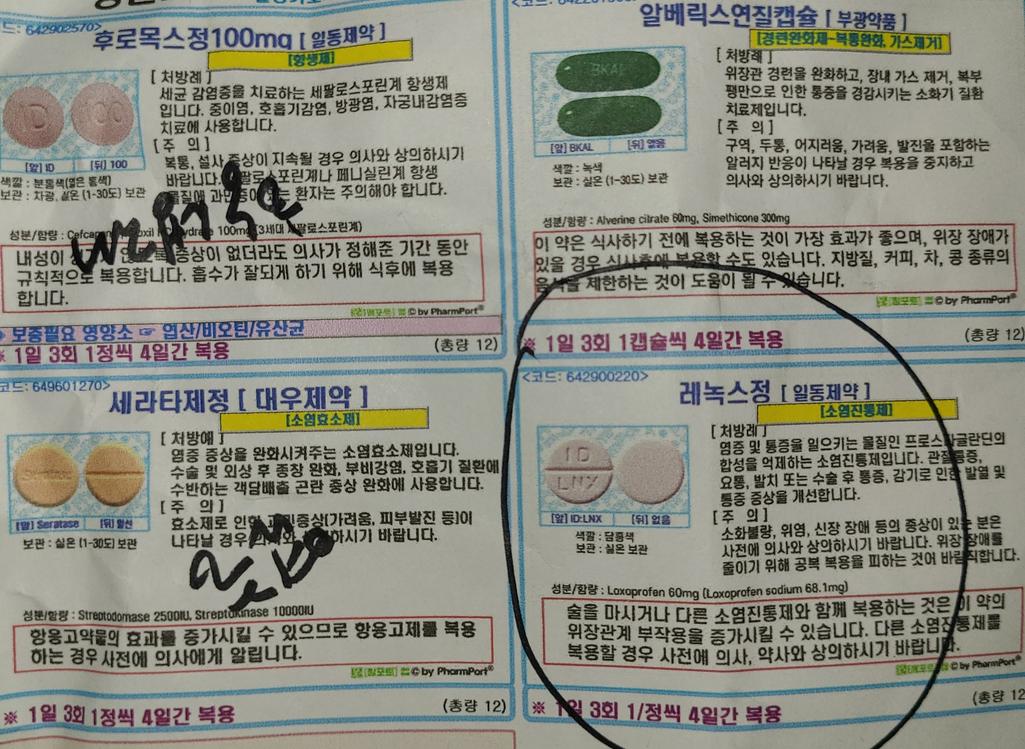 코드: 642902570>
후로목스정100mg [ 일동제약 ]
[항생제]
[ 처방례 ]
세균 감염증을 치료하는 세팔로스포린계 항생제
입니다. 중이염, 호흡기감염, 방광염, 자궁내감염증
치료에 사용합니다.
[ 주 의 ]
복통, 설사 증상이 지속될 경우 의사와 상의하시기
바랍니다. 세팔로스포린계나 페니실린계 항생
물질에 과민증이 있는 환자는 주의해야 합니다.
ID 100
[앞] ID [뒤] 100
색깔 : 분홍색(엷은 홍색)
보관 : 차광, 실온 (1-30도) 보관
성분/함량 : 100mg (3세대 세팔로스포린계)
내성이 증상이 없더라도 의사가 정해준 기간 동안
규칙적으로 복용합니다. 흡수가 잘되게 하기 위해 식후에 복용
합니다.
© by PharmPort®
보충필요 영양소 ☞ 엽산/비오틴/유산균
※ 1일 3회 1정씩 4일간 복용 (총량 12)
알베릭스연질캡슐 [ 부광약품 ]
[경련완화제-복통완화, 가스제거]
[ 처방례 ]
위장관 경련을 완화하고, 장내 가스 제거, 복부
팽만으로 인한 통증을 경감시키는 소화기 질환
치료제입니다.
[ 주 의 ]
구역, 두통, 어지러움, 가려움, 발진을 포함하는
알러지 반응이 나타날 경우 복용을 중지하고
의사와 상의하시기 바랍니다.
BKAL
[앞] BKAL [뒤] 없음
색깔 : 녹색
보관 : 실온 (1-30도) 보관
성분/함량 : Alverine citrate 60mg, Simethicone 300mg
이 약은 식사하기 전에 복용하는 것이 가장 효과가 좋으며, 위장 장애가
있을 경우 식사후에 복용할 수도 있습니다. 지방질, 커피, 차, 콩 종류의
음식을 제한하는 것이 도움이 될 수 있습니다.
© by PharmPort®
※ 1일 3회 1캡슐씩 4일간 복용 (총량 12)
코드: 649601270>
세라타제정 [ 대우제약 ]
[소염효소제]
[ 처방예 ]
염증 증상을 완화시켜주는 소염효소제입니다.
수술 및 외상 후 종창 완화, 부비강염, 호흡기 질환에
수반하는 객담배출 곤란 증상 완화에 사용합니다.
[ 주 의 ]
효소제로 인한 과민증상(가려움, 피부발진 등)이
나타날 경우 의사와 상의하시기 바랍니다.
Seratase
[앞] Seratase [뒤] 할선
보관 : 실온 (1-30도) 보관
소염
성분/함량 : Streptodornase 2500IU, Streptokinase 10000IU
항응고약물의 효과를 증가시킬 수 있으므로 항응고제를 복용
하는 경우 사전에 의사에게 알립니다.
© by PharmPort®
※ 1일 3회 1정씩 4일간 복용 (총량 12)
<코드: 642900220>
레녹스정 [ 일동제약 ]
[소염진통제]
[ 처방례 ]
염증 및 통증을 일으키는 물질인 프로스타글란딘의
합성을 억제하는 소염진통제입니다. 관절통증,
요통, 발치 또는 수술 후 통증, 감기로 인한 발열 및
통증 증상을 개선합니다.
[ 주 의 ]
소화불량, 위염, 신장 장애 등의 증상이 있는 분은
사전에 의사와 상의하시기 바랍니다. 위장 장애를
줄이기 위해 공복 복용을 피하는 것이 바람직합니다.
ID
LNX
[앞] ID:LNX [뒤] 없음
색깔 : 담홍색
보관 : 실온 보관
성분/함량 : Loxoprofen 60mg (Loxoprofen sodium 68.1mg)
술을 마시거나 다른 소염진통제와 함께 복용하는 것은 이 약의
위장관계 부작용을 증가시킬 수 있습니다. 다른 소염진통제를
복용할 경우 사전에 의사, 약사와 상의하시기 바랍니다.
© by PharmPort®
※ 1일 3회 1/정씩 4일간 복용 (총량 12